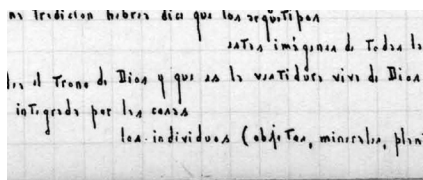 na tradición hebrea dice que los arquetipos
estas imágenes de todas la
el Trono de Dios y que es la vestidura viva de Dios
integrada por las cosas
los individuos (objetos, minerales, plan